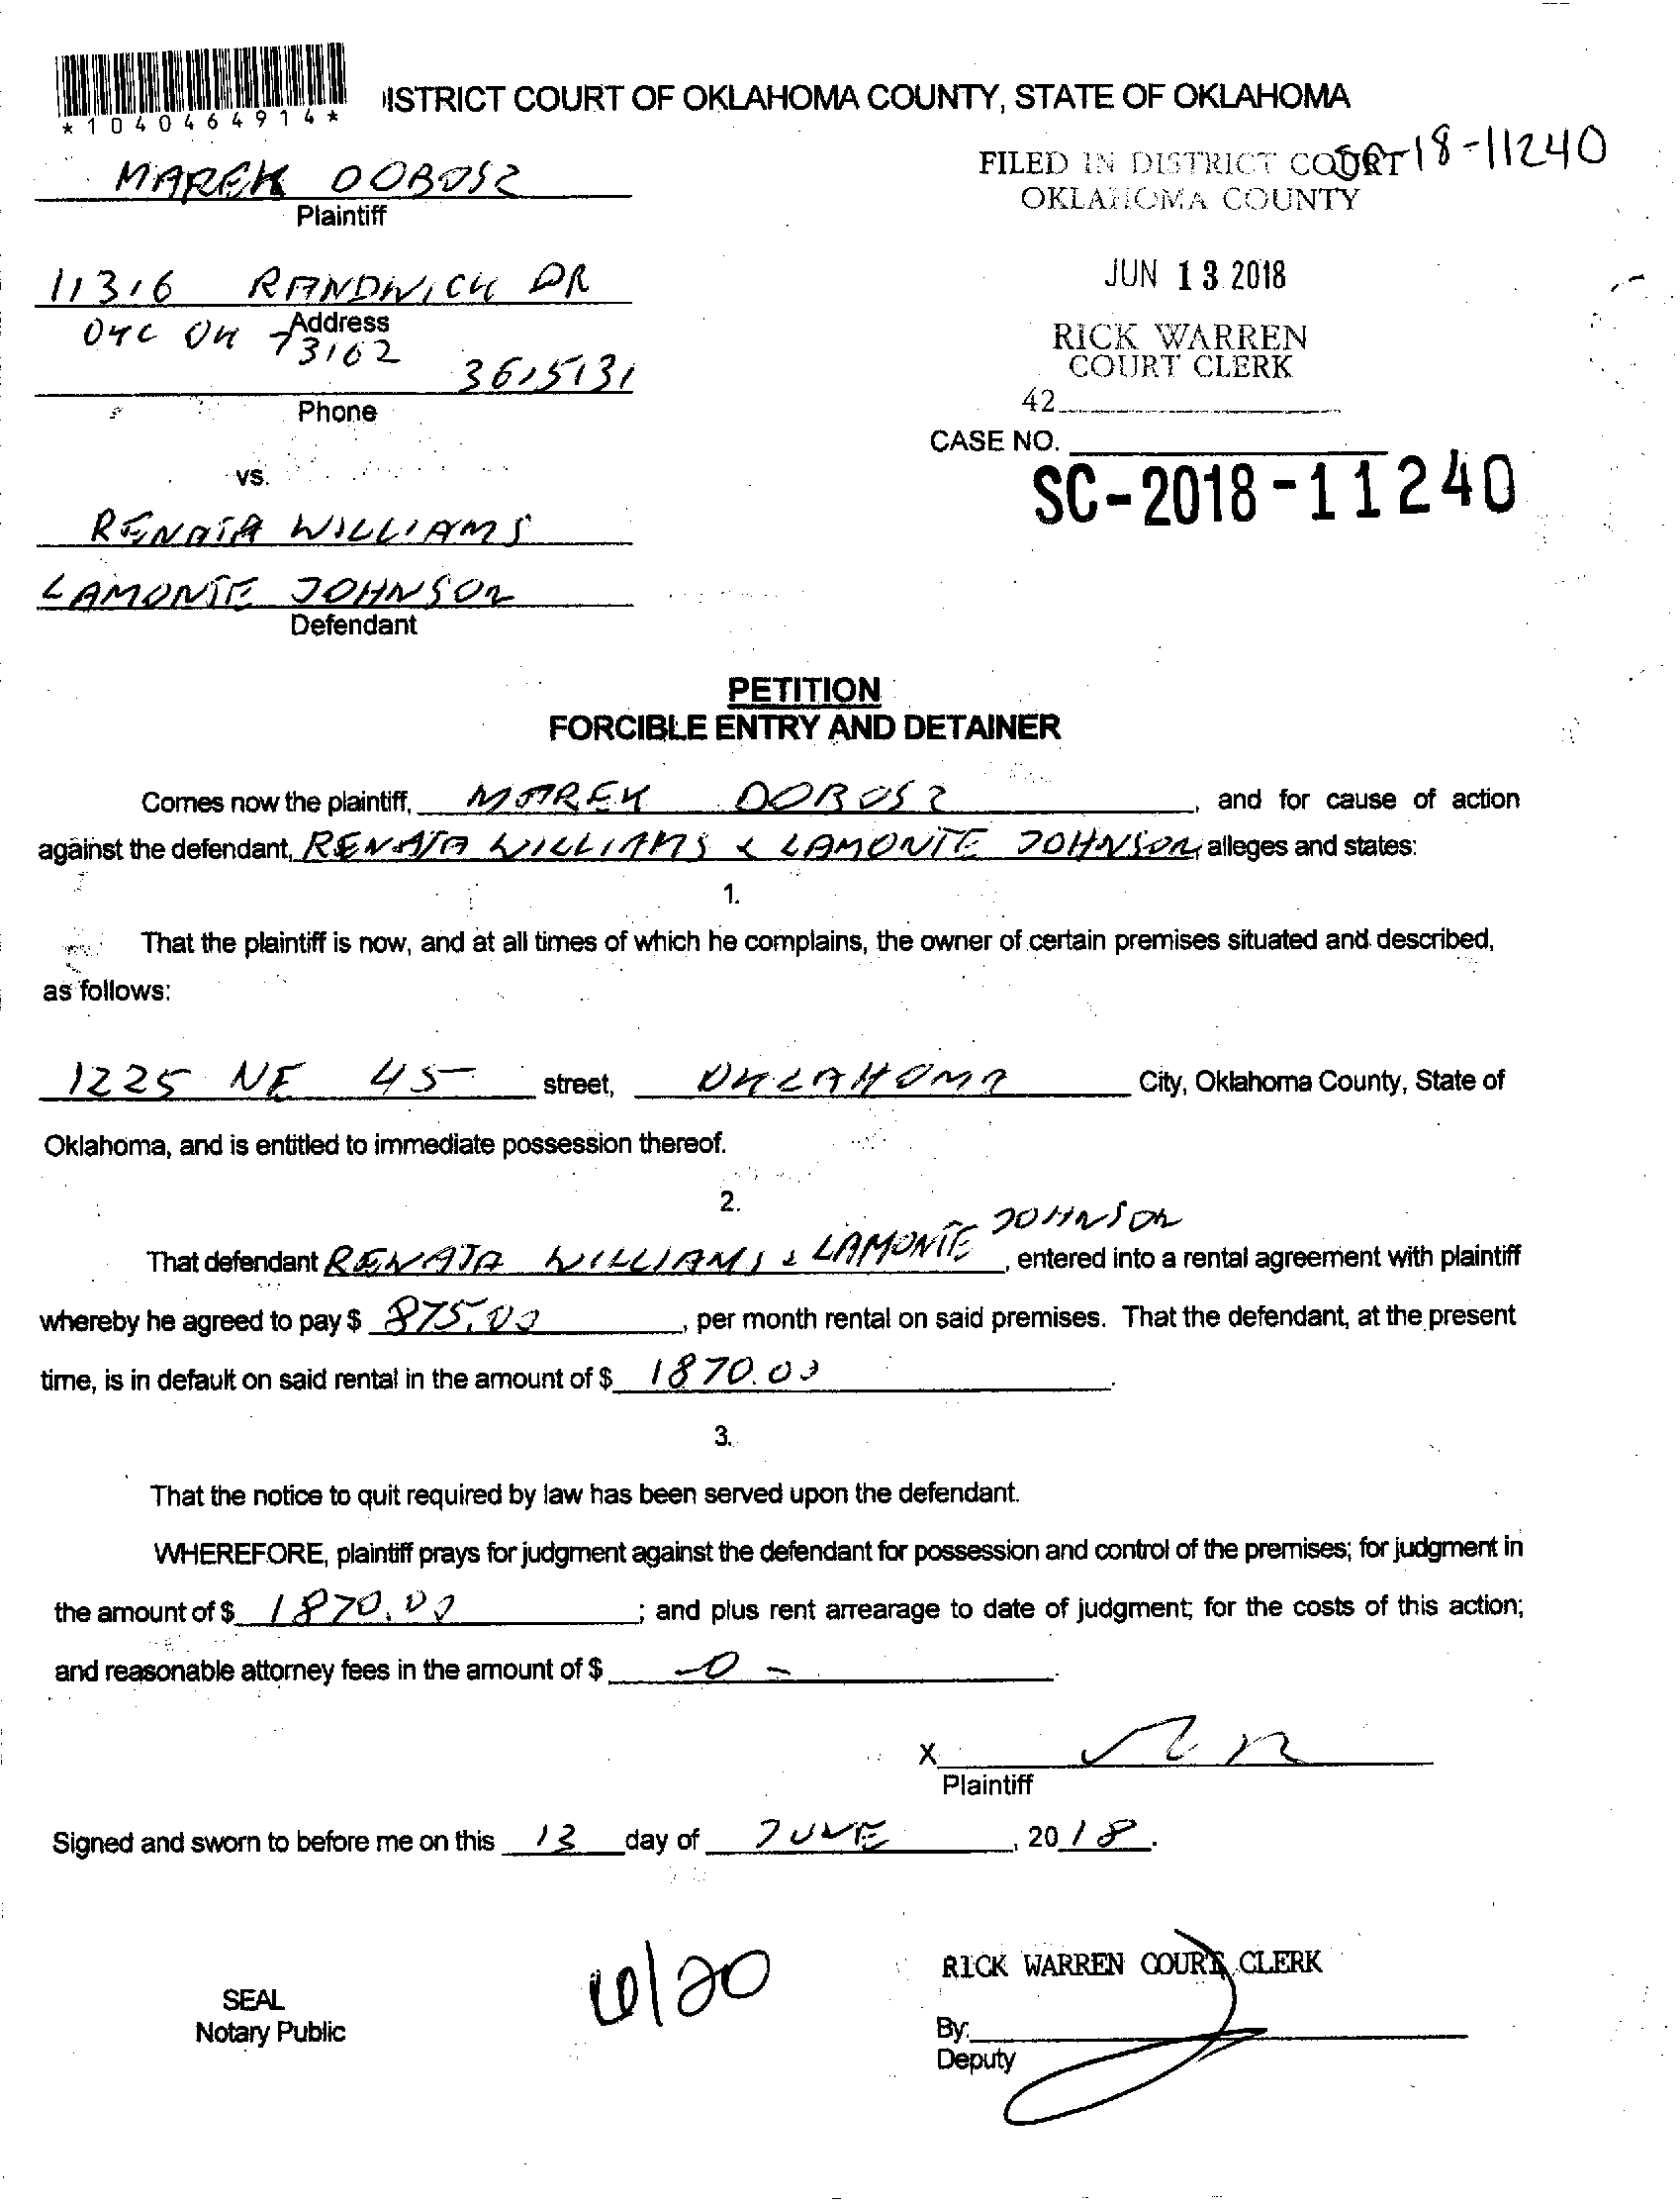 *1040464914*
ISTRICT COURT OF OKLAHOMA COUNTY, STATE OF OKLAHOMA
MAREK DOBOSZ
Plaintiff
FILED IN DISTRICT COURT 18-11240
OKLAHOMA COUNTY
11316 RANDWICK DR
Address
OKC OK 73162
JUN 13 2018
RICK WARREN
COURT CLERK
3615131
Phone
42
CASE NO.
SC-2018-11240
vs.
RENATA WILLIAMS
LAMONTE JOHNSON
Defendant
PETITION
FORCIBLE ENTRY AND DETAINER
Comes now the plaintiff, MAREK DOBOSZ, and for cause of action
against the defendant, RENATA WILLIAMS & LAMONTE JOHNSON, alleges and states:
1.
That the plaintiff is now, and at all times of which he complains, the owner of certain premises situated and described,
as follows:
1225 NE 45 street, OKLAHOMA City, Oklahoma County, State of
Oklahoma, and is entitled to immediate possession thereof.
2.
That defendant RENATA WILLIAMS & LAMONTE JOHNSON, entered into a rental agreement with plaintiff
whereby he agreed to pay $ 875.00, per month rental on said premises. That the defendant, at the present
time, is in default on said rental in the amount of $ 1870.00.
3.
That the notice to quit required by law has been served upon the defendant.
WHEREFORE, plaintiff prays for judgment against the defendant for possession and control of the premises; for judgment in
the amount of $ 1870.00; and plus rent arrearage to date of judgment; for the costs of this action;
and reasonable attorney fees in the amount of $ -0-.
X
Plaintiff
Signed and sworn to before me on this 13 day of JUNE, 2018.
6/20
RICK WARREN COURT CLERK
SEAL
Notary Public
By:
Deputy